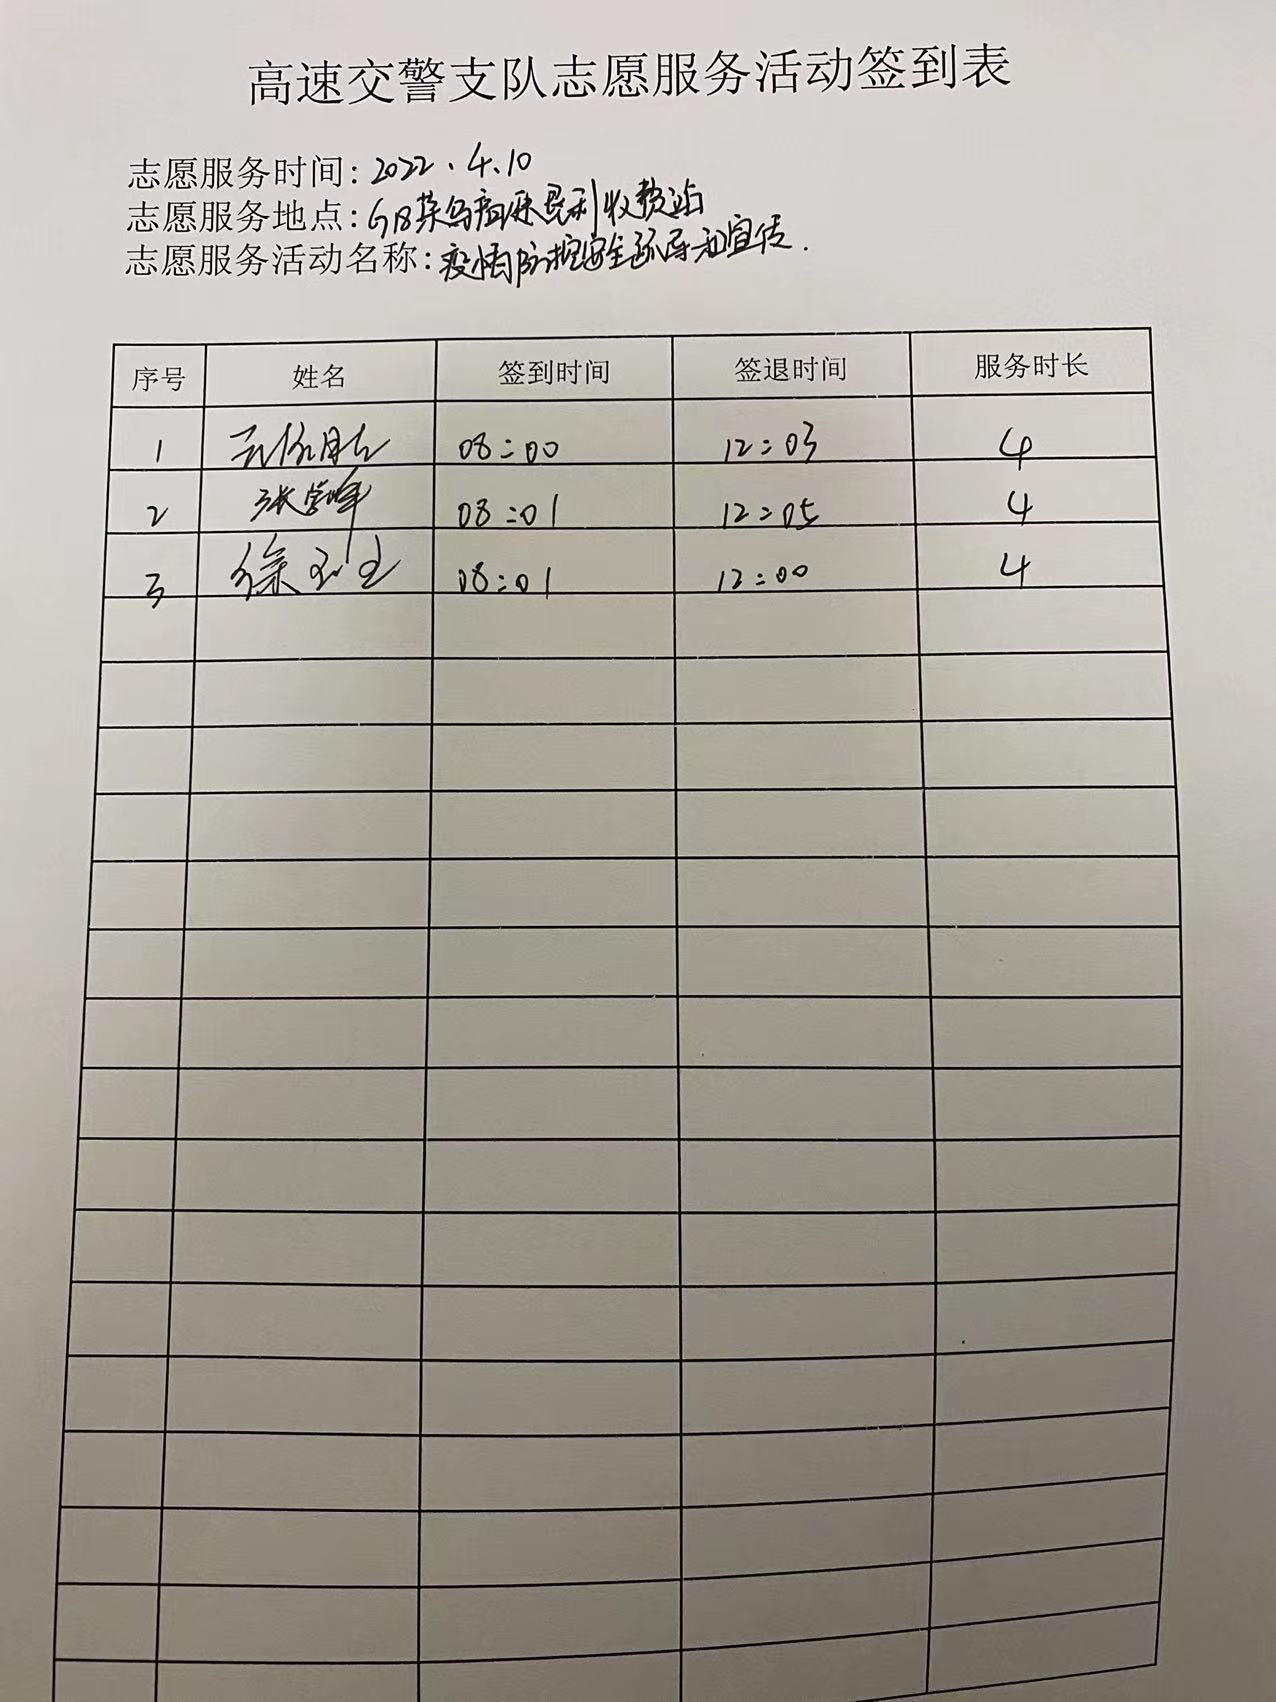 高速交警支队志愿服务活动签到表
志愿服务时间:2022.4.10
志愿服务地点:G18荣乌高速垦利收费站
志愿服务活动名称:疫情防控安全疏导和宣传.
序号 姓名 签到时间 签退时间 服务时长
1 08:00 12:03 4
2 张堂峰 08:01 12:05 4
3 徐 08:01 12:00 4